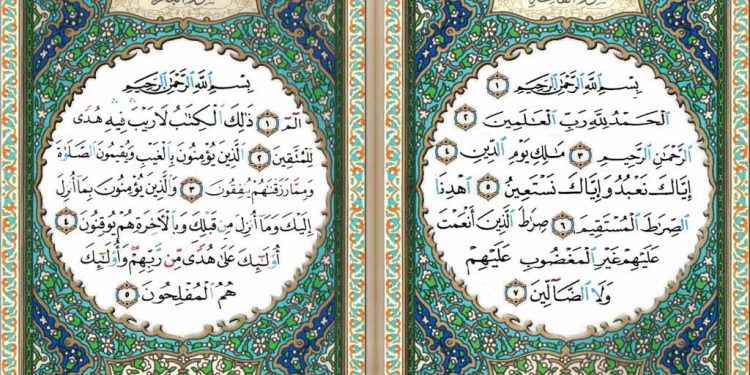 بِسْمِ ٱللَّهِ ٱلرَّحْمَٰنِ ٱلرَّحِيمِ ١
ٱلْحَمْدُ لِلَّهِ رَبِّ ٱلْعَٰلَمِينَ ٢
ٱلرَّحْمَٰنِ ٱلرَّحِيمِ ٣ مَٰلِكِ يَوْمِ ٱلدِّينِ ٤
إِيَّاكَ نَعْبُدُ وَإِيَّاكَ نَسْتَعِينُ ٥ ٱهْدِنَا
ٱلصِّرَٰطَ ٱلْمُسْتَقِيمَ ٦ صِرَٰطَ ٱلَّذِينَ أَنْعَمْتَ
عَلَيْهِمْ غَيْرِ ٱلْمَغْضُوبِ عَلَيْهِمْ
وَلَا ٱلضَّآلِّينَ ٧
بِسْمِ ٱللَّهِ ٱلرَّحْمَٰنِ ٱلرَّحِيمِ
الٓمٓ ١ ذَٰلِكَ ٱلْكِتَٰبُ لَا رَيْبَ فِيهِ هُدًى
لِّلْمُتَّقِينَ ٢ ٱلَّذِينَ يُؤْمِنُونَ بِٱلْغَيْبِ وَيُقِيمُونَ ٱلصَّلَوٰةَ
وَمِمَّا رَزَقْنَٰهُمْ يُنفِقُونَ ٣ وَٱلَّذِينَ يُؤْمِنُونَ بِمَآ أُنزِلَ
إِلَيْكَ وَمَآ أُنزِلَ مِن قَبْلِكَ وَبِٱلْأَخِرَةِ هُمْ يُوقِنُونَ ٤
أُو۟لَٰٓئِكَ عَلَىٰ هُدًى مِّن رَّبِّهِمْ وَأُو۟لَٰٓئِكَ
هُمُ ٱلْمُفْلِحُونَ ٥